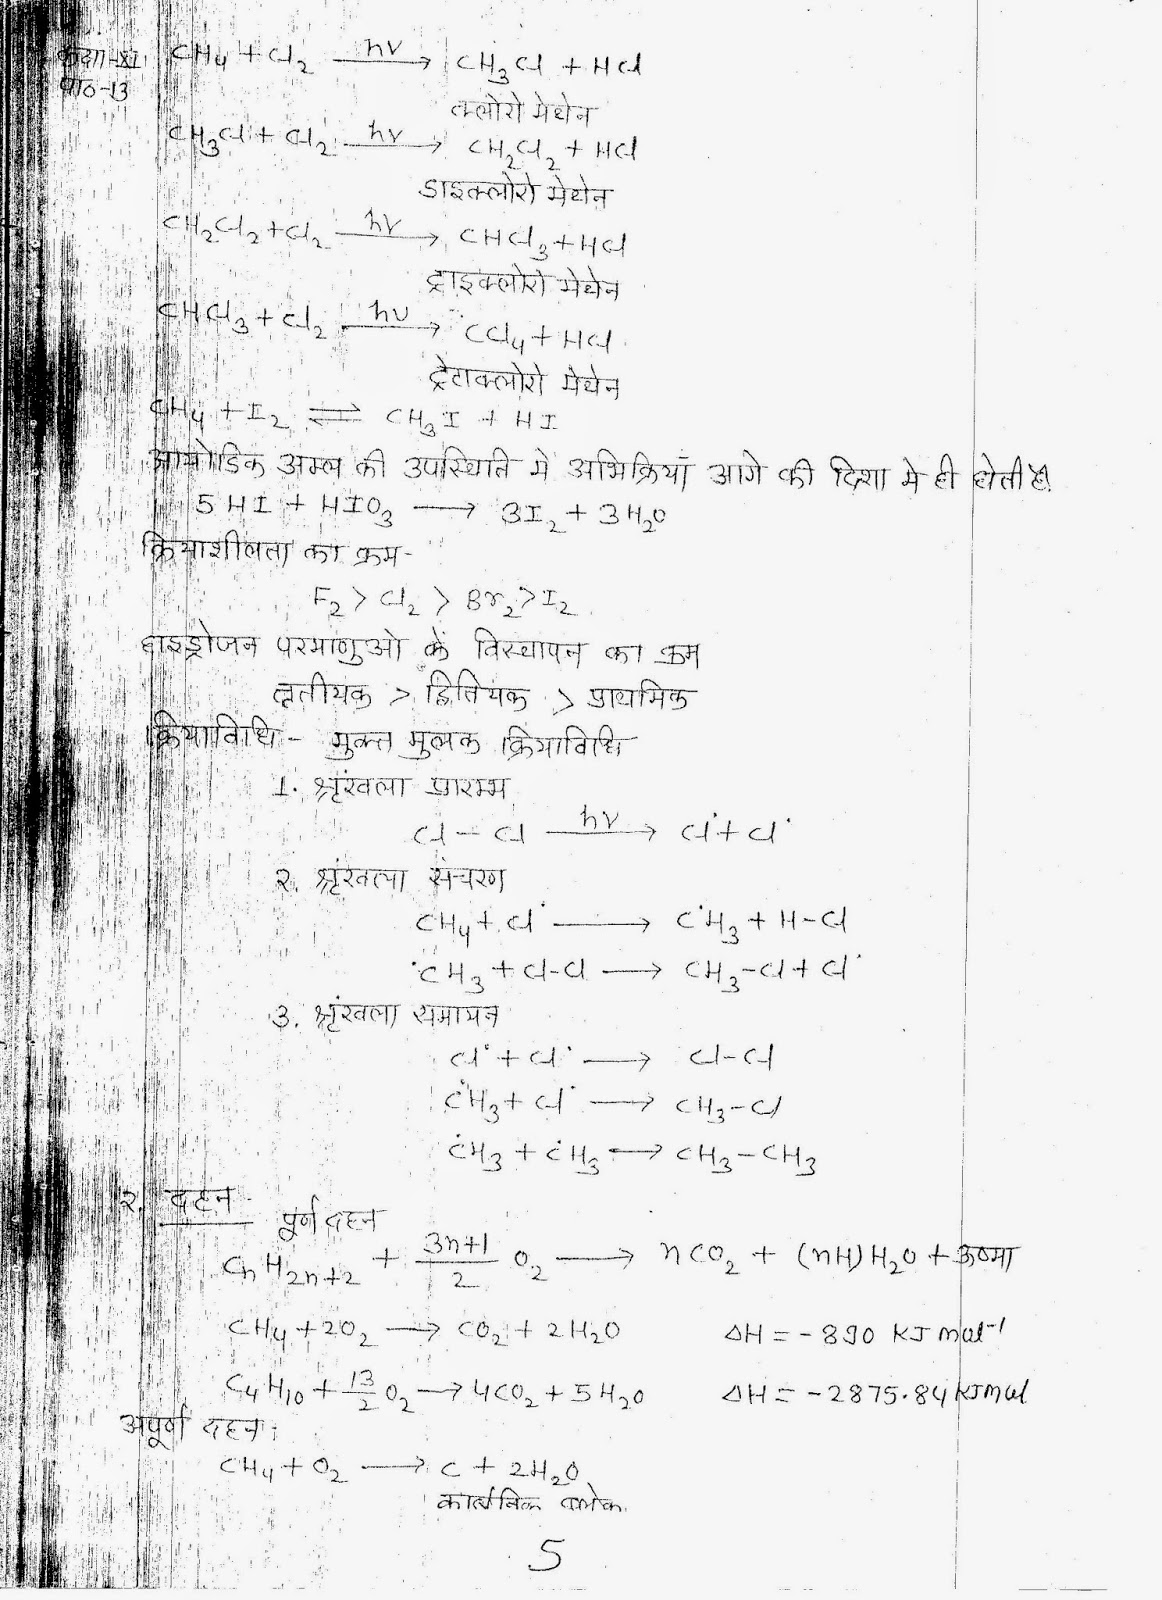 कक्षा-XI
पाठ-13
CH₄ + Cl₂ —hν→ CH₃Cl + HCl
क्लोरो मेथेन
CH₃Cl + Cl₂ —hν→ CH₂Cl₂ + HCl
डाइक्लोरो मेथेन
CH₂Cl₂ + Cl₂ —hν→ CHCl₃ + HCl
ट्राइक्लोरो मेथेन
CHCl₃ + Cl₂ —hν→ CCl₄ + HCl
ट्रेटाक्लोरो मेथेन
CH₄ + I₂ ⇌ CH₃I + HI
आयोडिक अम्ल की उपस्थिति मे अभिक्रियाँ आगे की दिशा मे ही होती है।
5HI + HIO₃ → 3I₂ + 3H₂O
क्रियाशीलता का क्रम-
F₂ > Cl₂ > Br₂ > I₂
हाइड्रोजन परमाणुओ के विस्थापन का क्रम
तृतीयक > द्वितियक > प्राथमिक
क्रियाविधि - मुक्त मुलक क्रियाविधि
1. श्रृंखला प्रारम्भ
Cl – Cl —hν→ Cl˙ + Cl˙
2. श्रृंखला संचरण
CH₄ + Cl˙ → ĊH₃ + H-Cl
˙CH₃ + Cl-Cl → CH₃-Cl + Cl˙
3. श्रृंखला समापन
Cl˙ + Cl˙ → Cl-Cl
ĊH₃ + Cl˙ → CH₃-Cl
ĊH₃ + ĊH₃ → CH₃-CH₃
2. दहन -
पूर्ण दहन
CnH₂n₊₂ + (3n+1)/2 O₂ → nCO₂ + (nH)H₂O + ऊष्मा
CH₄ + 2O₂ → CO₂ + 2H₂O ΔH = -890 KJ mol⁻¹
C₄H₁₀ + 13/2 O₂ → 4CO₂ + 5H₂O ΔH = -2875.84 KJ mol
अपूर्ण दहन:
CH₄ + O₂ → C + 2H₂O
कार्बनिक
5